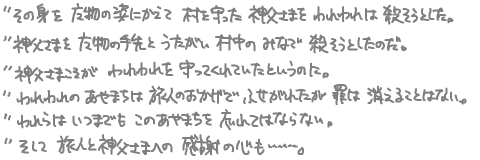 "その身を 魔物の姿にかえて 村を守った 神父さまを われわれは 殺そうとした。
"神父さまを 魔物の手先と うたがい 村中の みなで 殺そうとしたのだ。
"神父さまこそが われわれを 守ってくれていたというのに。
"われわれの あやまちは 旅人のおかげで ふせがれたが 罪は 消えることはない。
"われらは いつまでも このあやまちを 忘れてはならない。
"そして 旅人と神父さまへの 感謝の心も……。